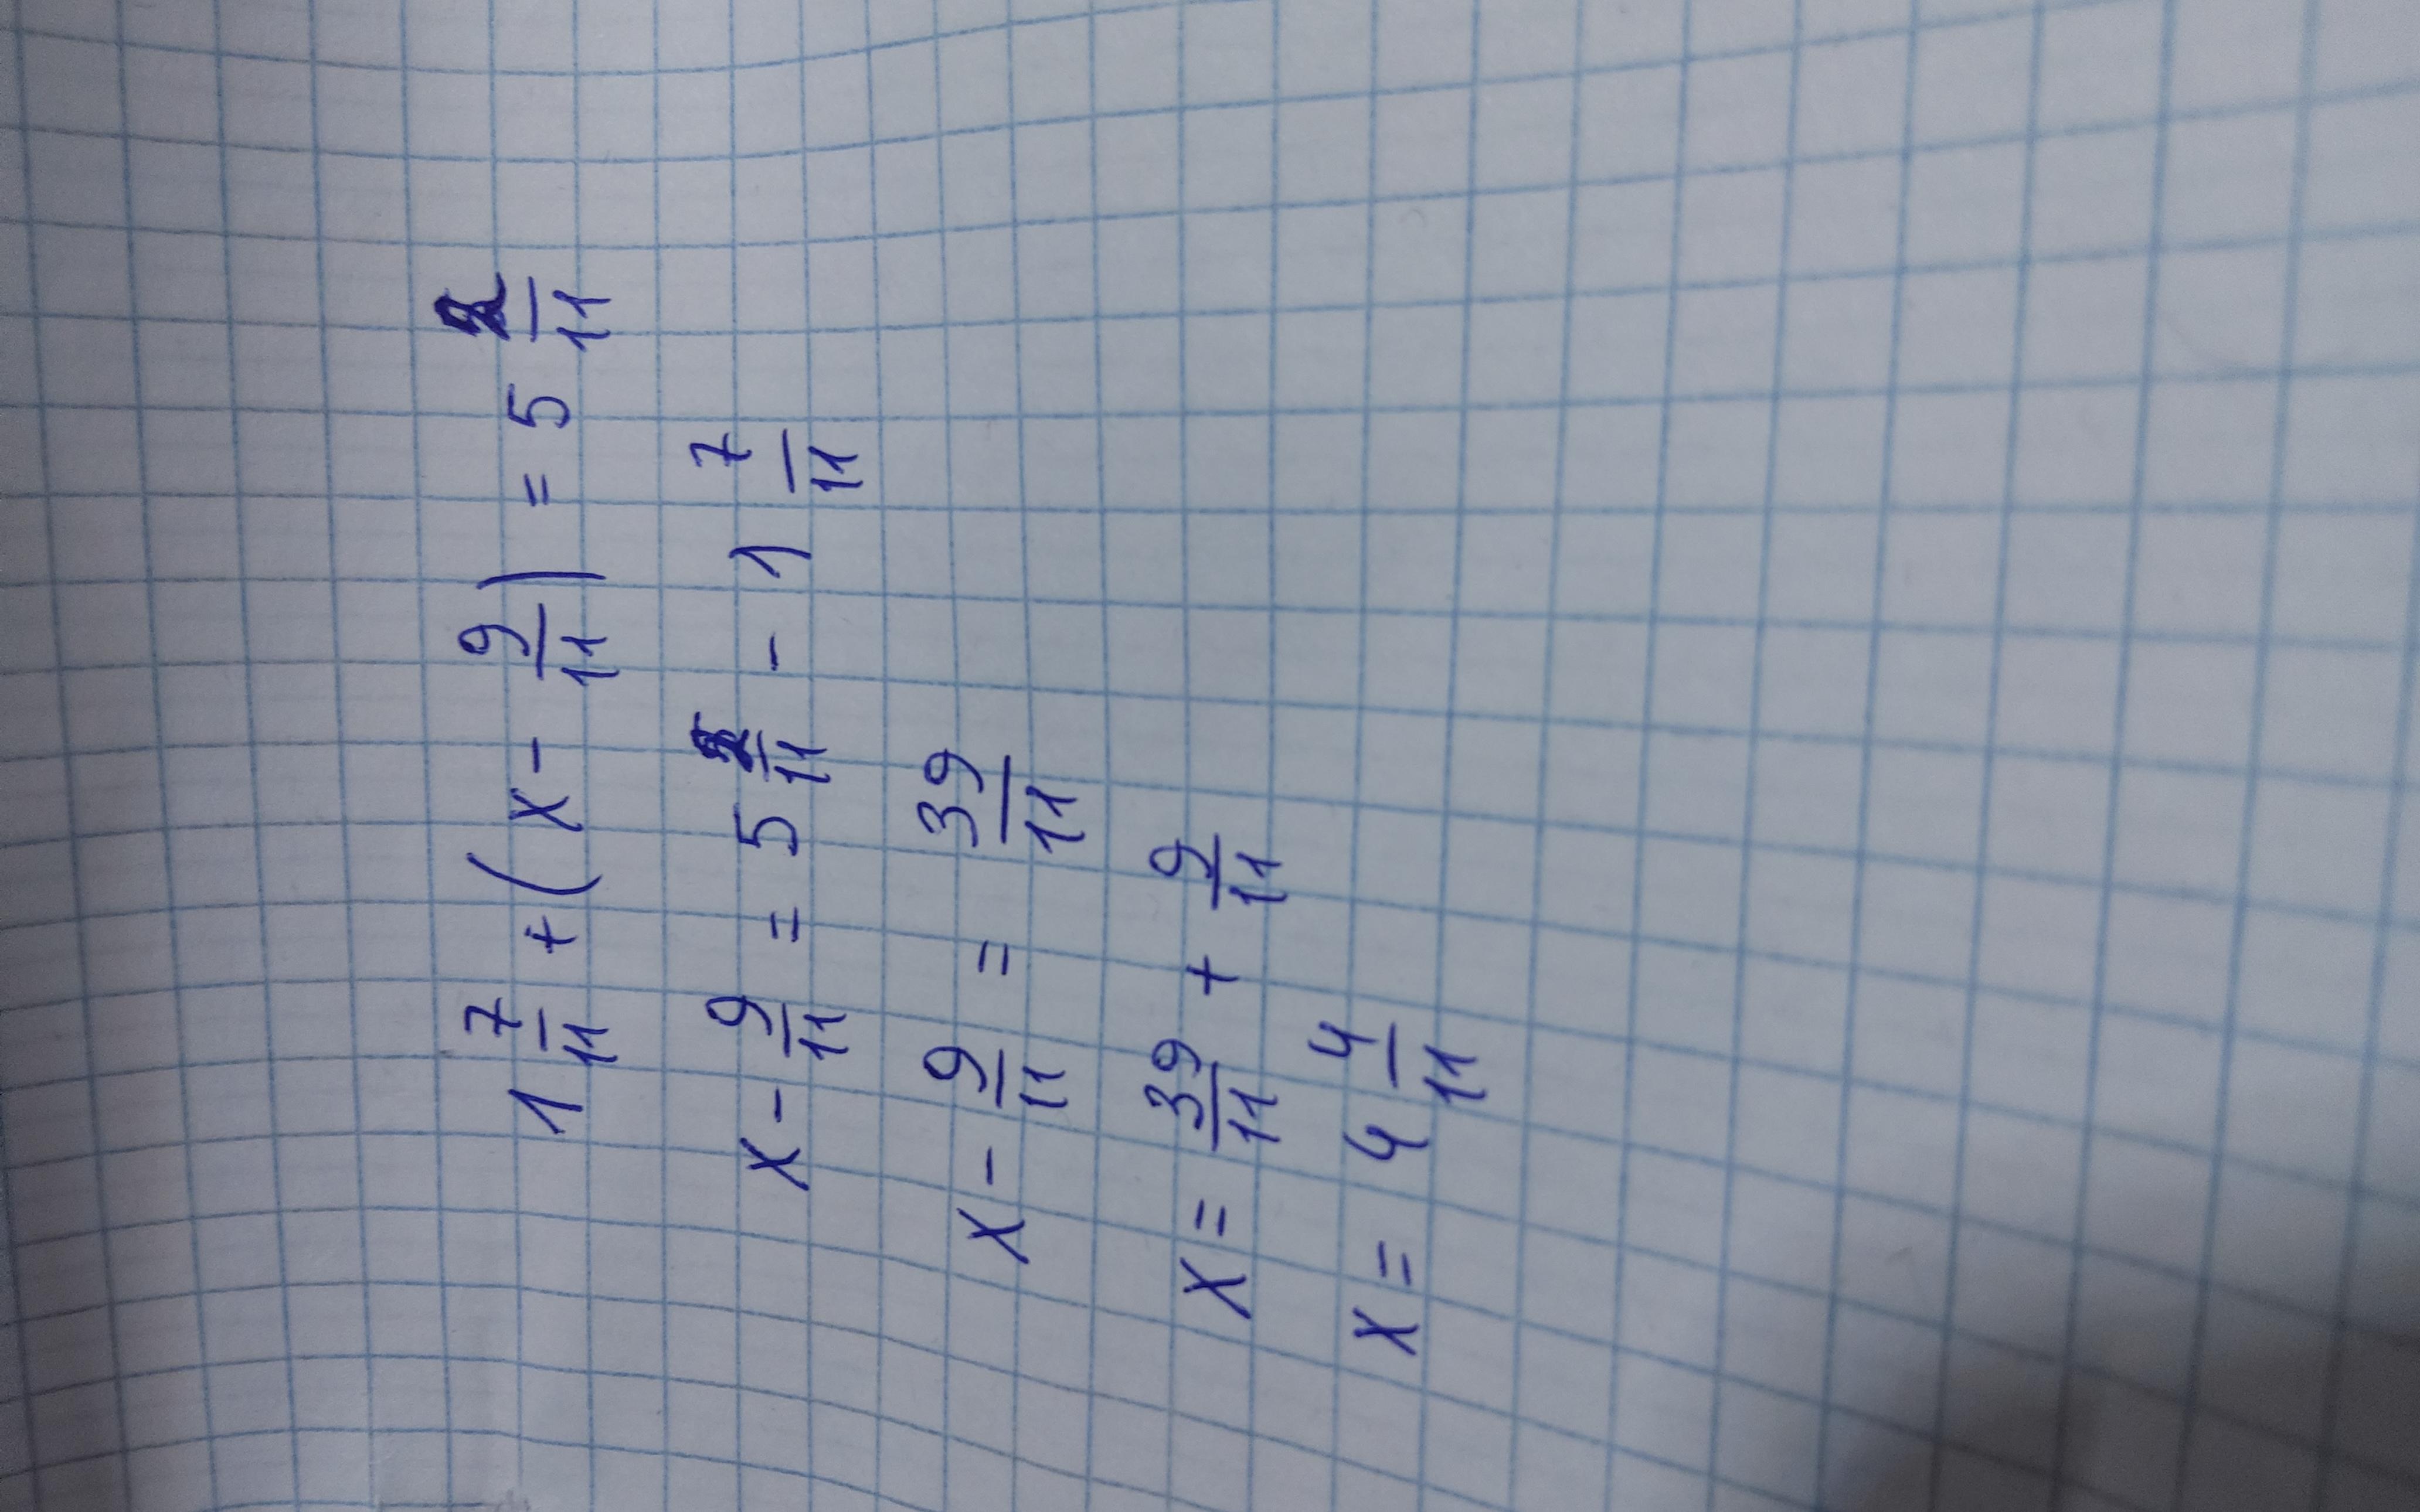 1 7/11 + (x - 9/11) = 5 2/11
x - 9/11 = 5 2/11 - 1 7/11
x - 9/11 = 39/11
x = 39/11 + 9/11
x = 4 4/11